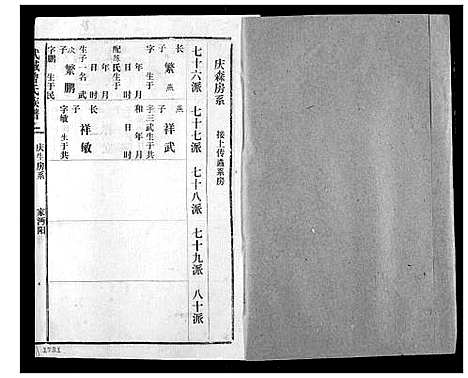 庆森房系
接上传盛系房
七十六派 七十七派 七十八派 七十九派 八十派
长子 繁燕
字 生于
年 月
日 时
配 氏生于
年 月
日 时
生子一名 武
次子 繁鹏
字鹏 生于民
燕子 祥武
字三武生于共
和 年 月
日 时
子 祥敏
字敏 生于共
庆生房系
家沔阳
1721